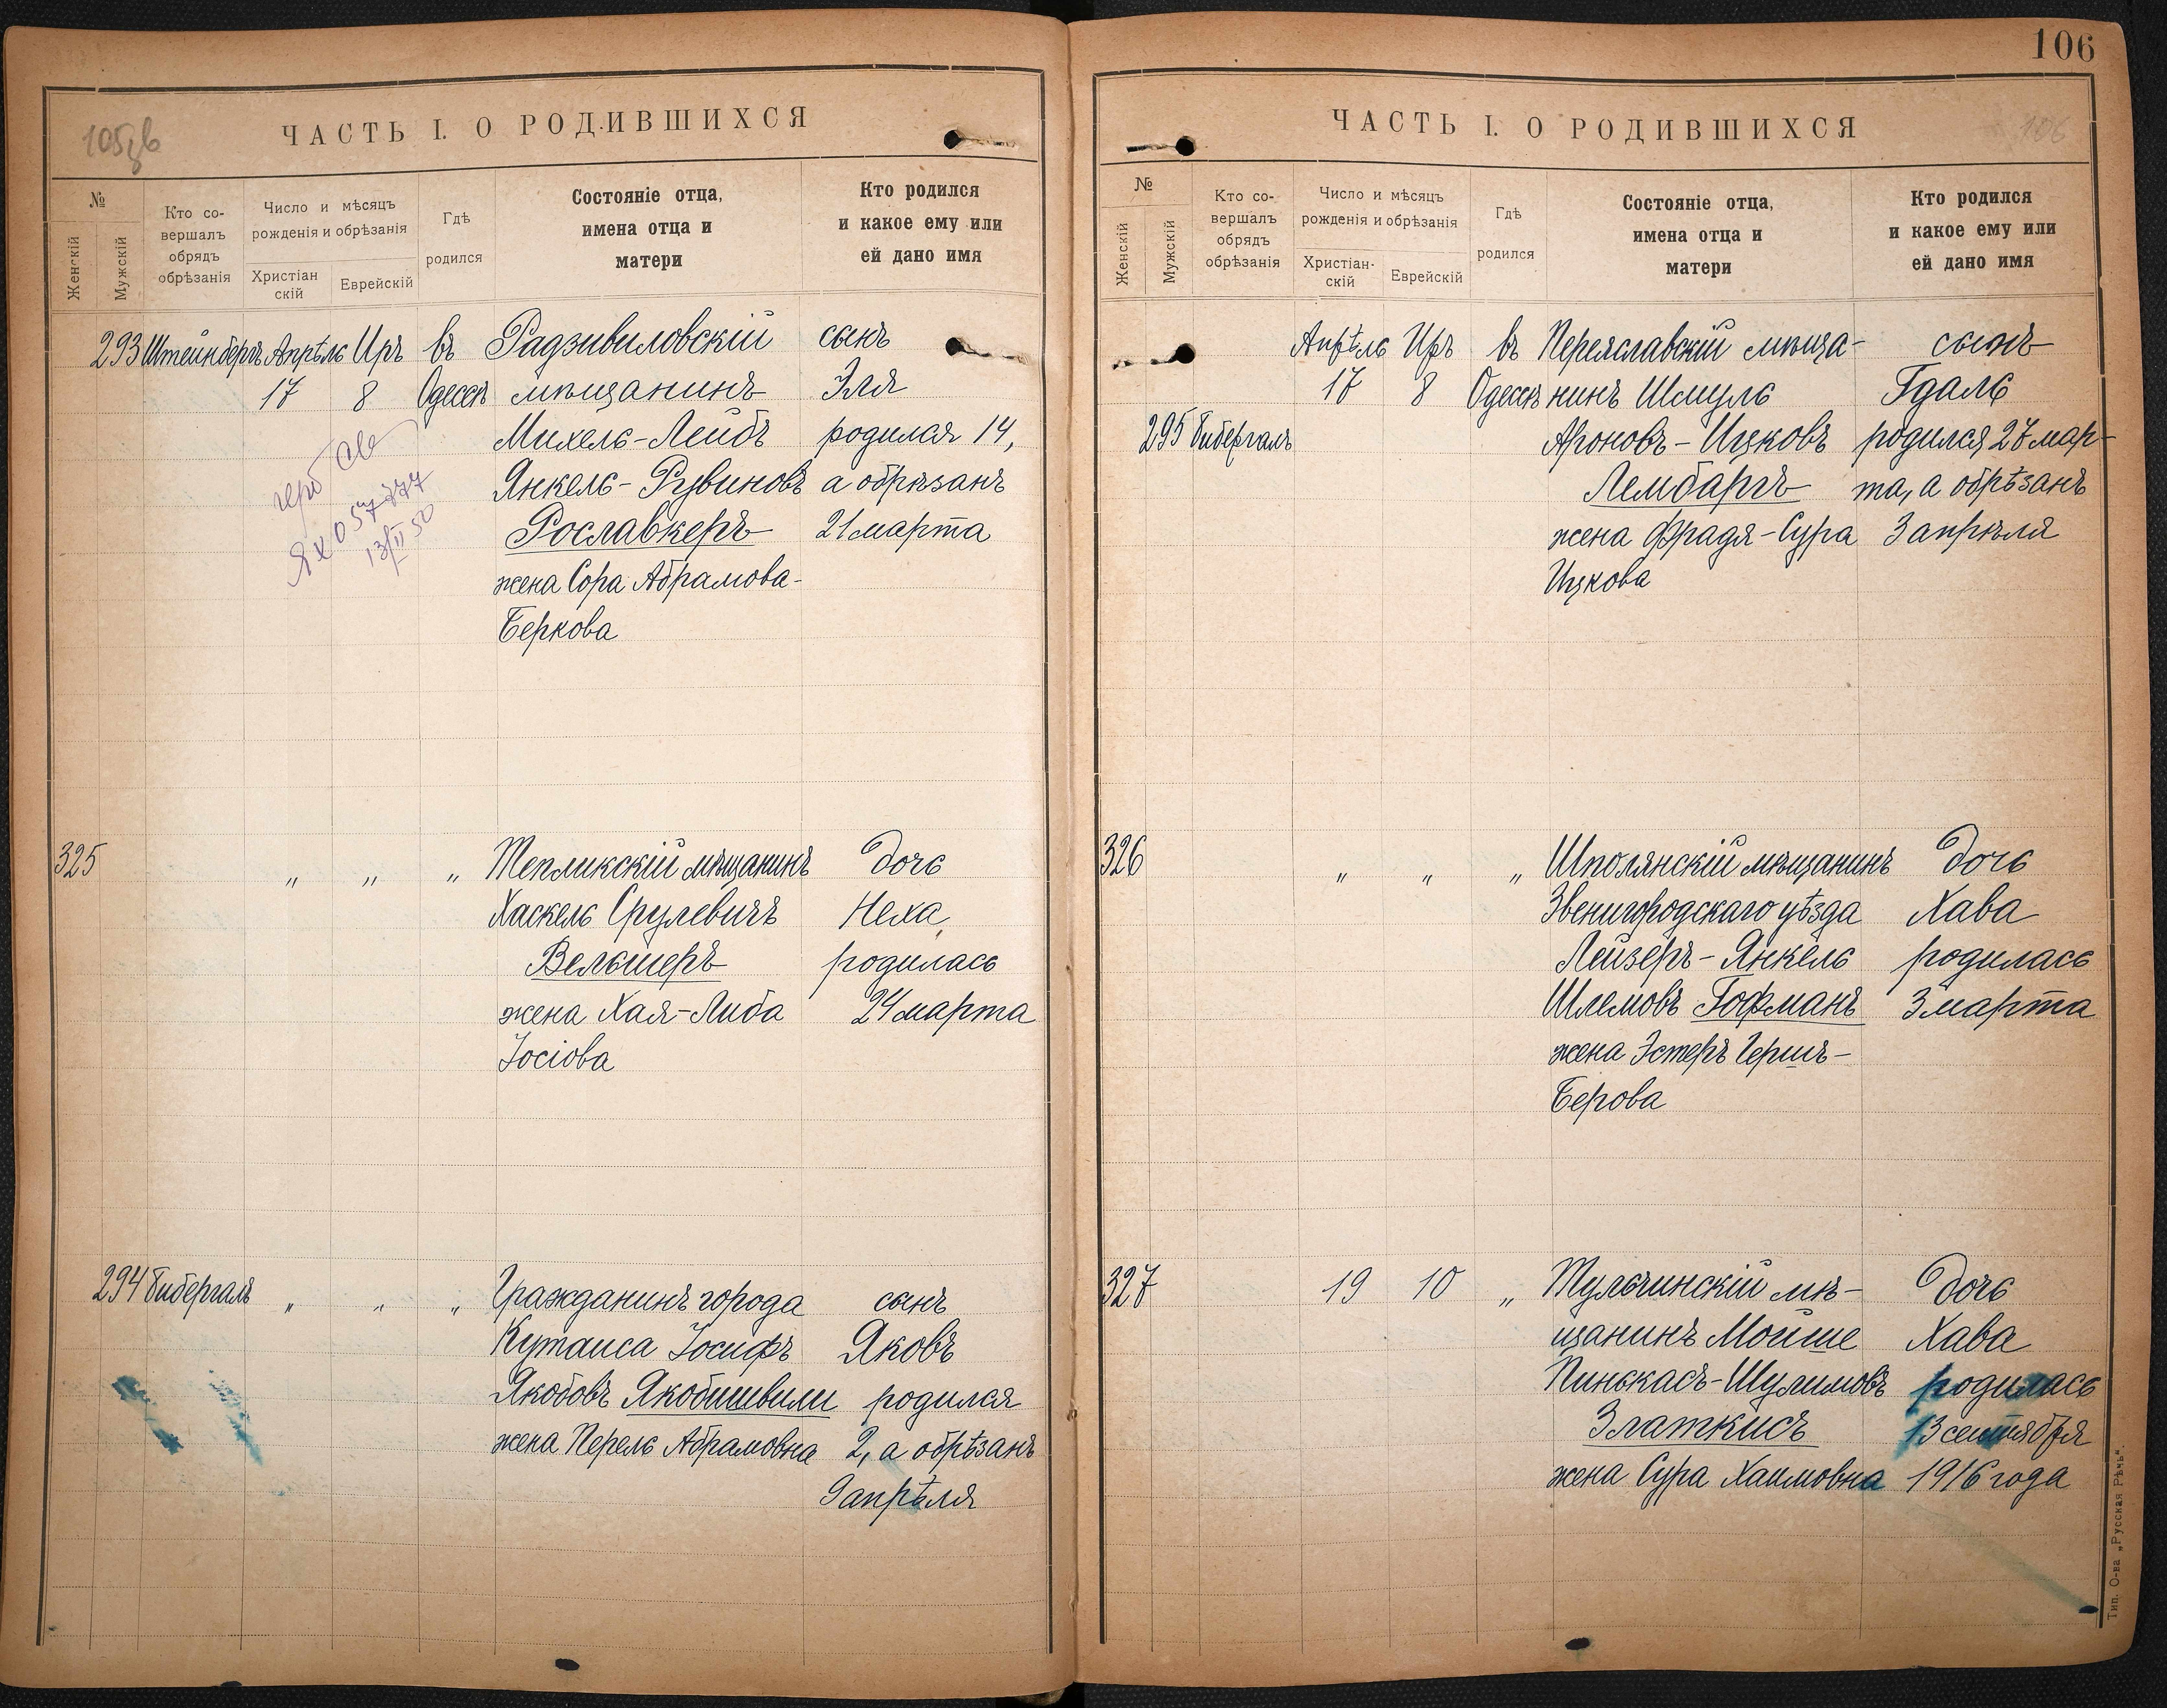 105 зв
ЧАСТЬ I. О РОДИВШИХСЯ
№
Женскій
Мужскій
Кто со-
вершалъ
обрядъ
обрѣзанія
Число и мѣсяцъ
рожденія и обрѣзанія
Христіан
скій
Еврейскій
Гдѣ
родился
Состояніе отца,
имена отца и
матери
Кто родился
и какое ему или
ей дано имя
293 Штейнбергъ Апрѣль Иръ въ Радзивиловскій сынъ
17 8 Одессѣ мѣщанинъ Эля
Михель-Лейбъ родился 14,
Янкель-Рувиновъ а обрѣзанъ
Рославкеръ 21 марта
жена Сора Абрамова-
Беркова
13/II 50
325 " " " Тепликскій мѣщанинъ дочь
Хаскель Срулевичъ Неха,
Вельшеръ родилась
жена Хая-Либа 24 марта
Іосіова
294 Бибергалъ " " " Гражданинъ города сынъ
Кутаиса Іосифъ Яковъ
Якобовъ Якобишвили родился
жена Перель Абрамовна 2, а обрѣзанъ
9 апрѣля
106
ЧАСТЬ I. О РОДИВШИХСЯ
106
№
Женскій
Мужскій
Кто со-
вершалъ
обрядъ
обрѣзанія
Число и мѣсяцъ
рожденія и обрѣзанія
Христіан-
скій
Еврейскій
Гдѣ
родился
Состояніе отца,
имена отца и
матери
Кто родился
и какое ему или
ей дано имя
Апрѣль Иръ въ Переяславскій мѣща- сынъ
17 8 Одессѣ нинъ Шмуль Гдаль
295 Бибергалъ Ароновъ-Ицковъ родился 27 мар-
Лембаргъ та, а обрѣзанъ
жена Фрадя-Сура 3 апрѣля
Ицкова
326 " " " Шполянскій мѣщанинъ дочь
Звенигородскаго уѣзда Хава
Лейзеръ-Янкель родилась
Шлемовъ Гофманъ 3 марта
жена Эстеръ Гершъ-
Берова
327 19 10 " Тульчинскій мѣ- дочь
щанинъ Мойше Хава
Пинькасъ-Шулимовъ родилась
Златкисъ 13 сентября
жена Сура Хаимовна 1916 года
Тип. О-ва „Русская Рѣчь".